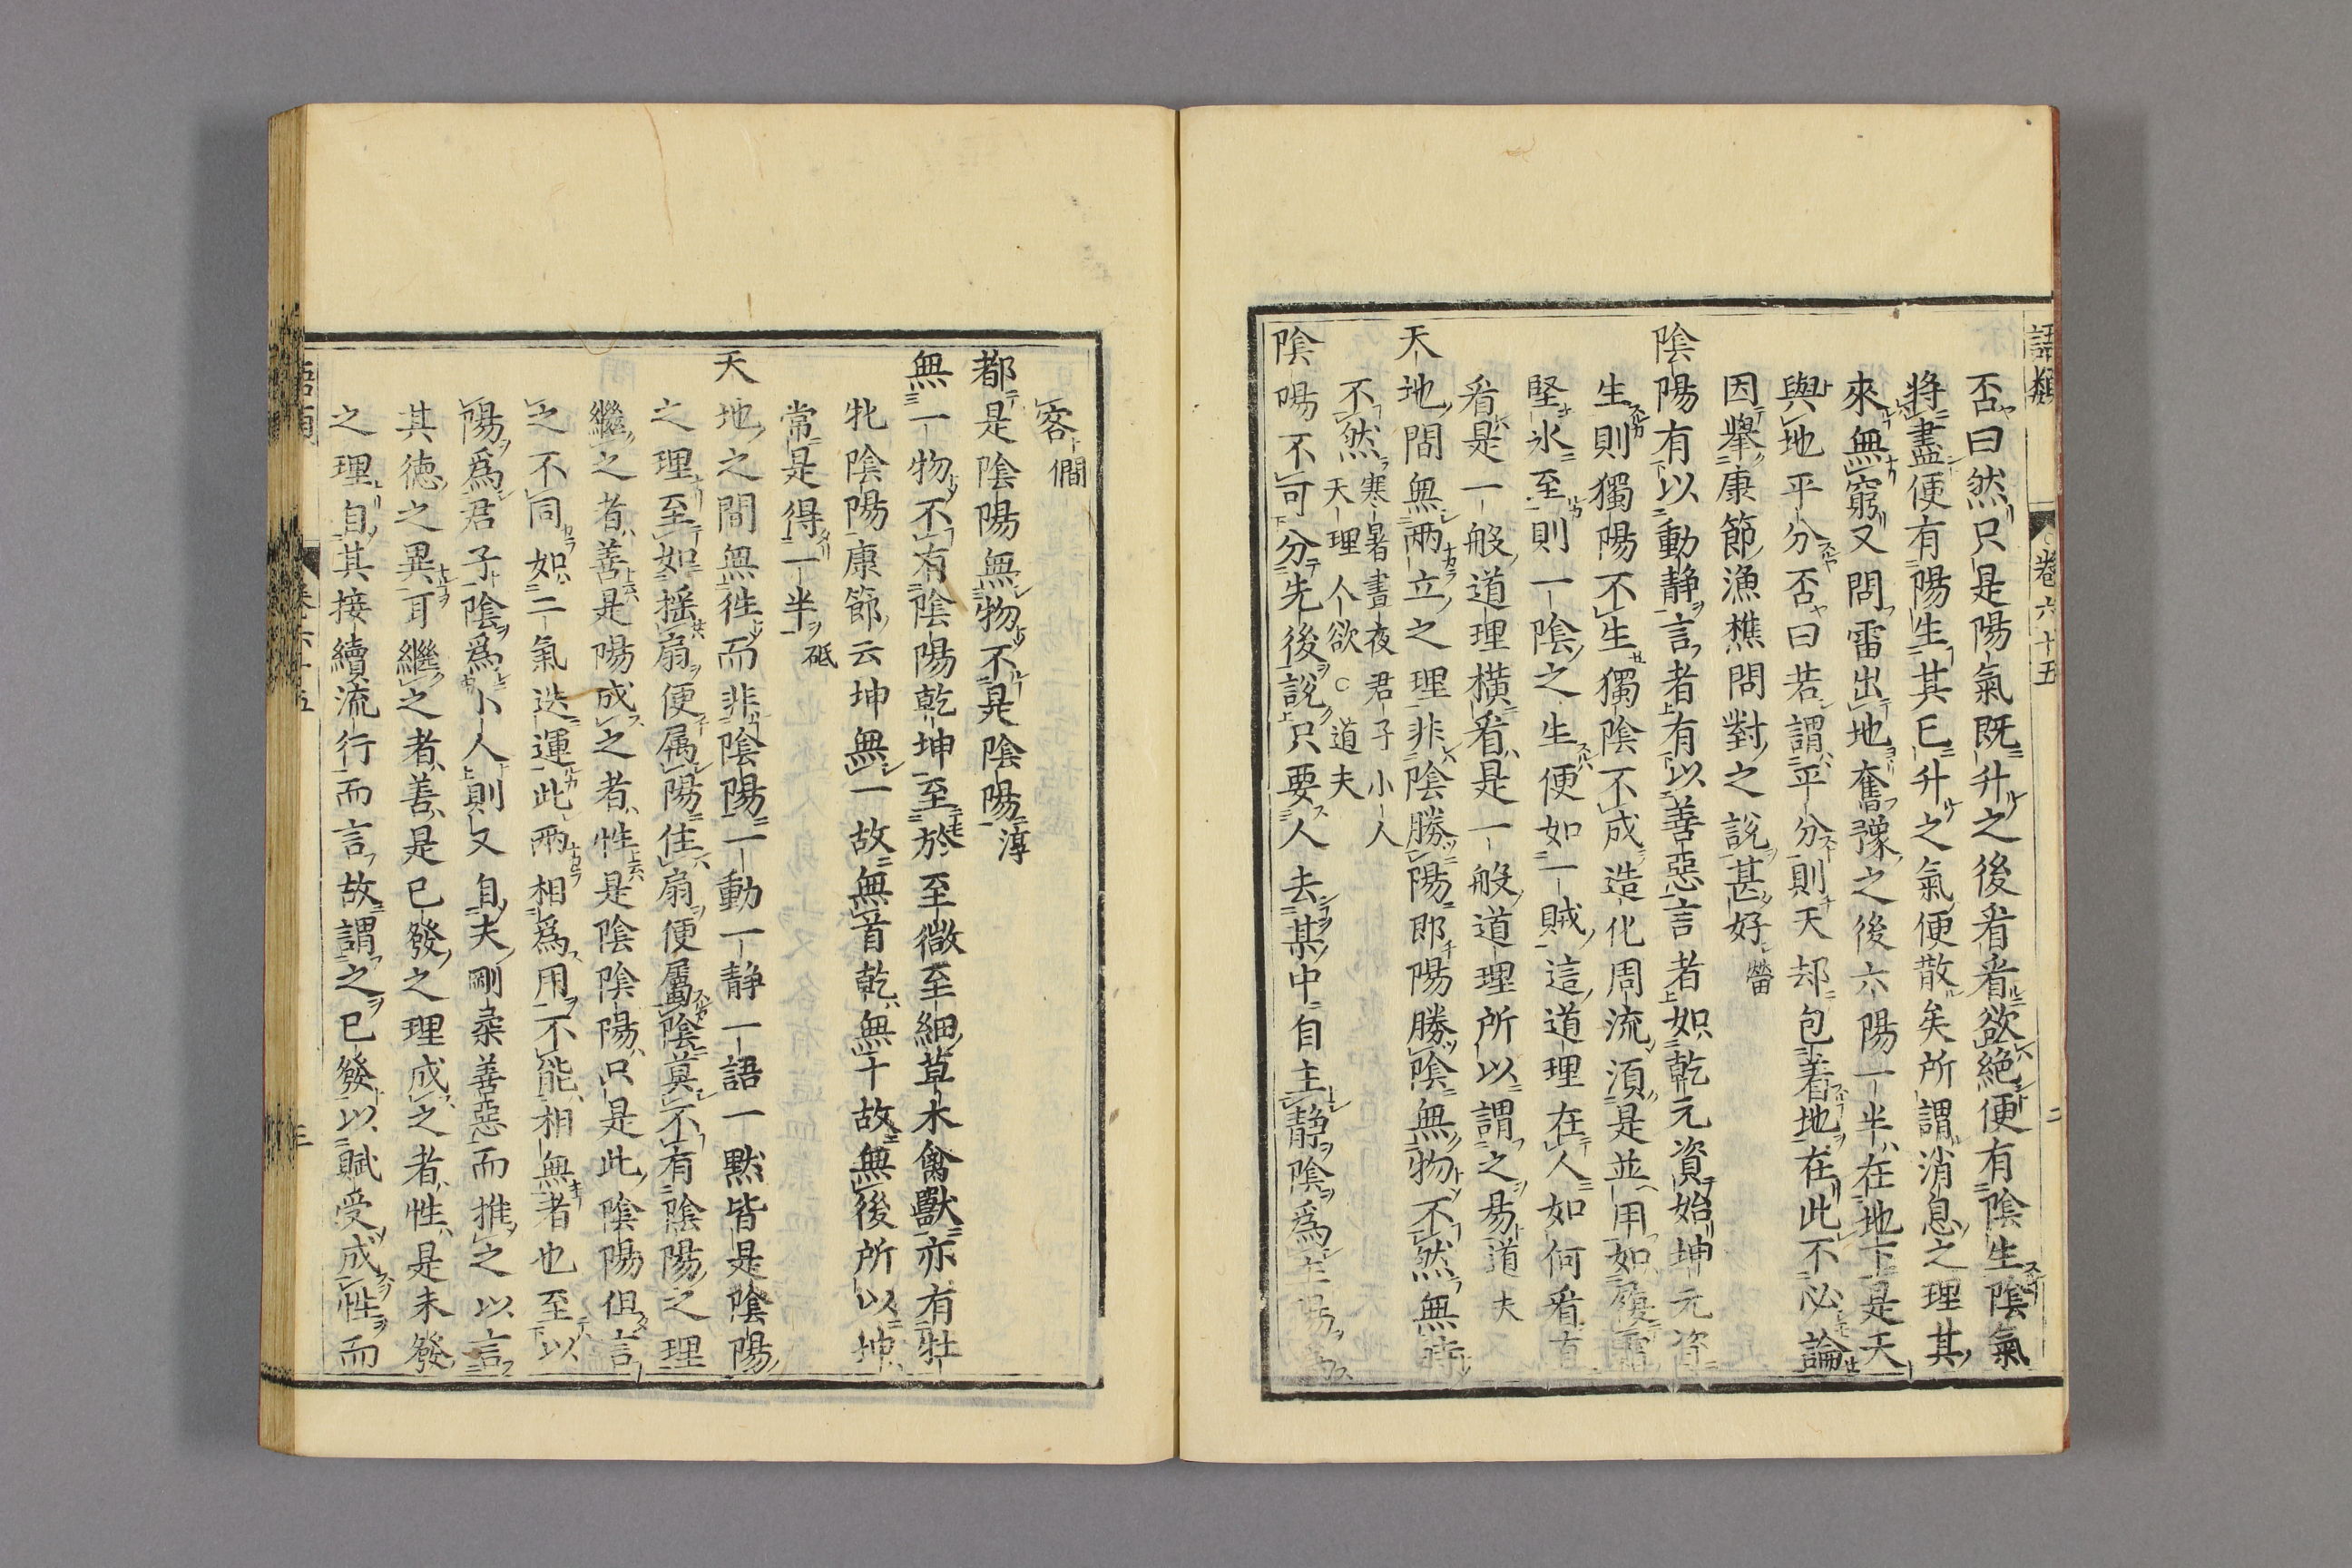 語類 卷六十五 二
否曰然只是陽氣既升之後看看欲絶便有陰生陰氣
將盡便有陽生其已升之氣便散矣所謂消息之理其
來無窮又問雷出地奮豫之後六陽一半在地下是天
與地平分否曰若謂平分則天却包着地在此不必論
因舉康節漁樵問對之說甚好
陰陽有以動静言者有以善惡言者如乾元資始坤元資
生則獨陽不生獨陰不成造化周流須是並用如履霜
堅氷至則一陰之生便如一賊這道理在人如何看直
看是一般道理横看是一般道理所以謂之易道夫
天地間無兩立之理非陰勝陽即陽勝陰無物不然無時
不然寒暑晝夜君子小人
天理人欲○道夫
陰陽不可分先後說只要人去其中自主静陰爲主陽
客僩
都是陰陽無物不是陰陽淳
無一物不有陰陽乾坤至於至微至細草木禽獸亦有牡
牝陰陽康節云坤無一故無首乾無十故無後所以坤
常是得一半砥
天地之間無徃而非陰陽一動一静一語一黙皆是陰陽
之理至如揺扇便属陽住扇便屬陰莫不有陰陽之理
繼之者善是陽成之者性是陰陰陽只是此陰陽但言
之不同如二氣迭運此兩相爲用不能相無者也至以
陽爲君子陰爲小人則又自夫剛柔善惡而推之以言
其徳之異耳繼之者善是已發之理成之者性是未發
之理自其接續流行而言故謂之已發以賦受成性而
語類 卷六十五 三